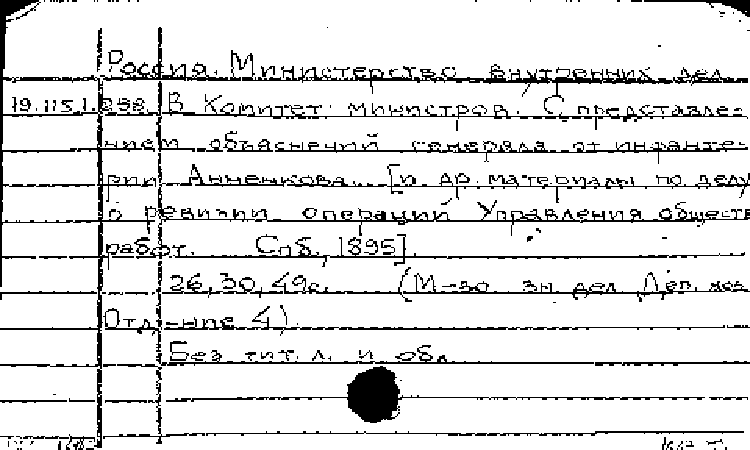 Россия. Министерство внутренних дел.
19.115.1.898 В Комитет министров. С представле-
нием объяснений генерала от инфанте-
рии Анненкова. [и др. материалы по делу
о ревизии операций Управления обществ.
работ. Спб., 1895].
26, 30, 49с. (М-во вн. дел. Деп. хоз.
Отд-ние 4).
Без тит. л. и обл.